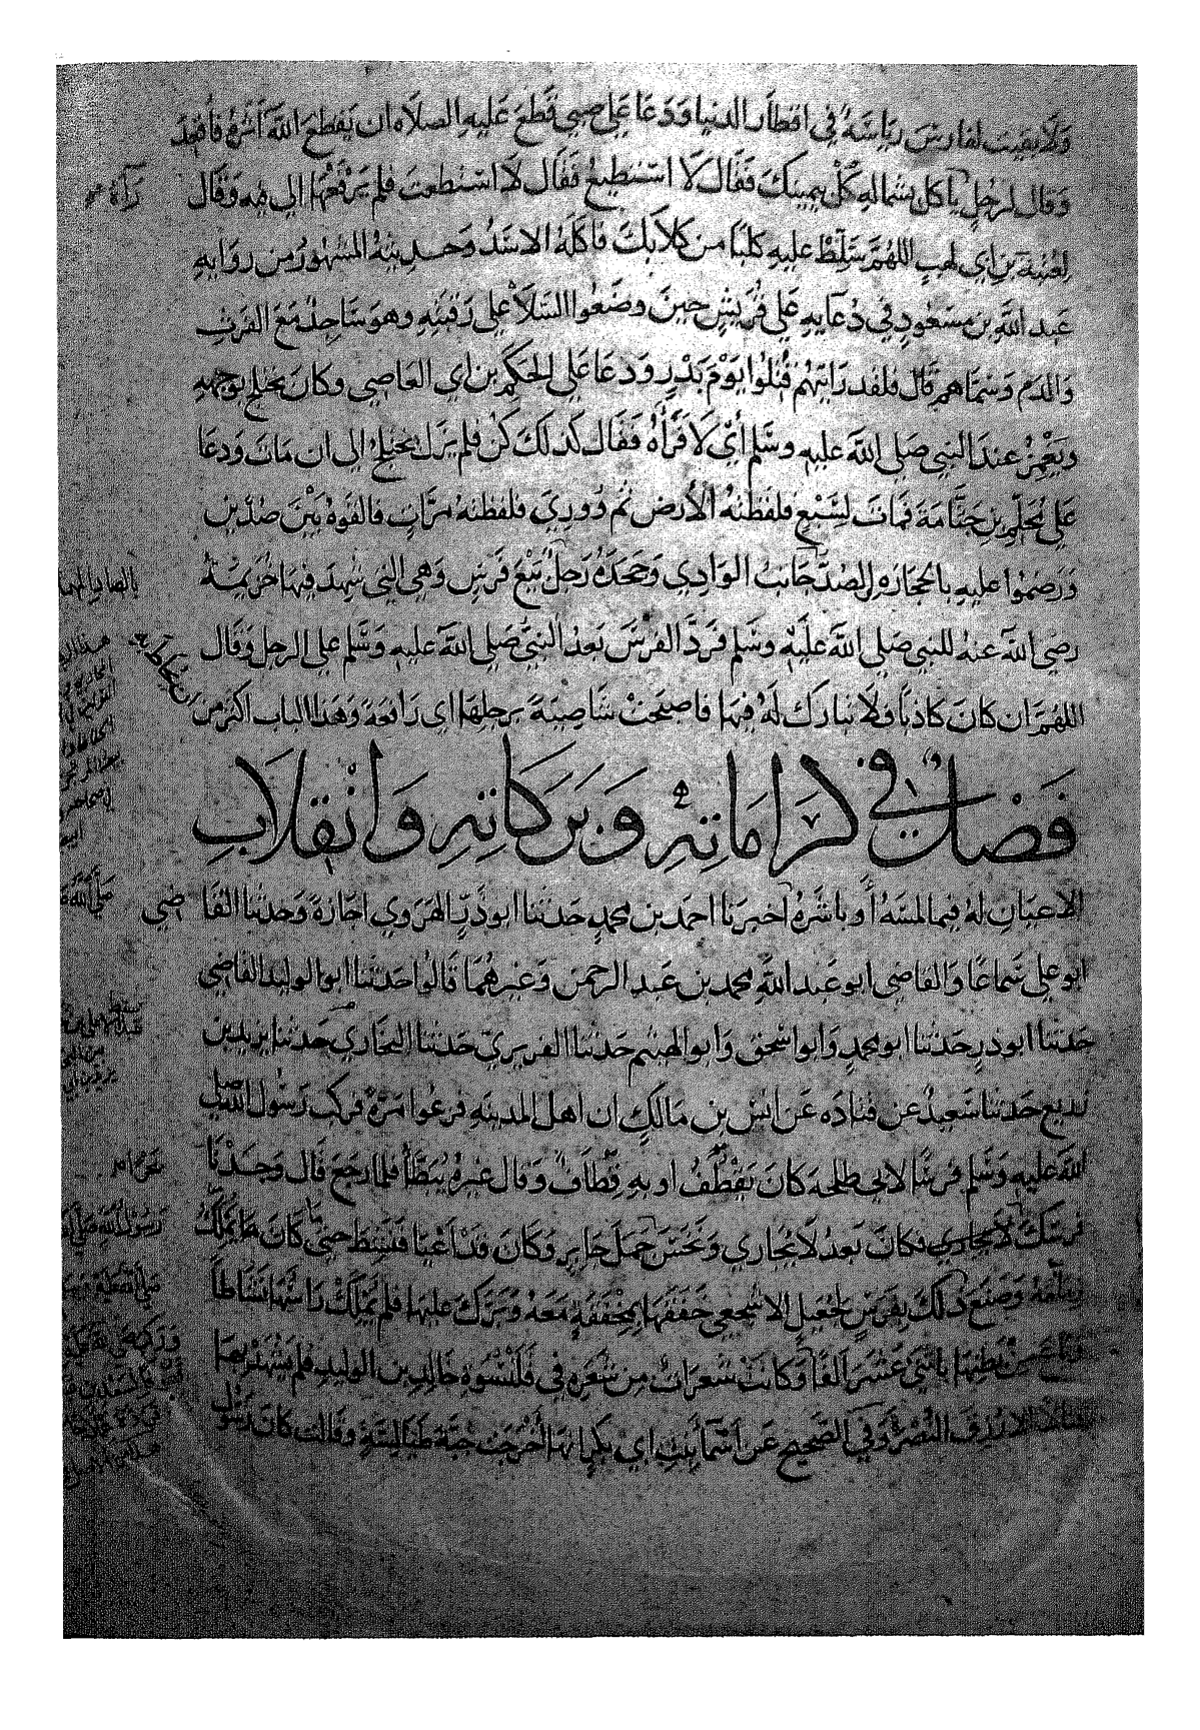 ولا بقيت لفارس رياسة في اقطار الدنيا ودعا على صبي قطع عليه الصلاة ان يقطع الله اثره فاقعد
وقال لرجل ياكل بشماله كل بيمينك فقال لا استطيع فقال لا استطعت فلم يرفعها الي فيه وقال
لعتبة بن ابي لهب اللهم سلط عليه كلبا من كلابك فاكله الاسد وحديثه المشهور من رواية
عبد الله بن مسعود في دعايه على قريش حين وضعوا السلا على رقبته وهو ساجد مع الفرث
والدم وسماهم قال فلقد رايتهم قتلوا يوم بدر ودعا على الحكم بن ابي العاصي وكان يختلج بوجهه
ويغمز عند النبي صلى الله عليه وسلم اي لا فرآه فقال كذلك كن فلم يزل يختلج الي ان مات ودعا
على محلم بن جثامة فمات لسبع فلفظته الارض ثم ووري فلفظته مرات فالقوه بين صدين
ورضموا عليه بالحجارة الصد جانب الوادي وجحده رجل بيع فرس وهي التي شهد فيها خزيمة
رضي الله عنه للنبي صلى الله عليه وسلم فرد الفرس بعد النبي صلى الله عليه وسلم على الرجل وقال
اللهم ان كان كاذبا فلا تبارك له فيها فاصبحت شاصية برجلها اي رافعة وهذا الباب اكثر من
فصل في كراماته وبركاته وانقلاب
الاعيان له فيما لمسه أو باشره اخبرنا احمد بن محمد حدثنا ابو ذر الهروي اجازة وحدثنا القاضي
ابو علي سماعا والقاضي ابو عبد الله محمد بن عبد الرحمن وغيرهما قالوا حدثنا ابو الوليد القاضي
حدثنا ابو ذر حدثنا ابو محمد وابو اسحق وابو الهيثم حدثنا الفربري حدثنا البخاري حدثنا يزيد بن
زريع حدثنا سعيد عن قتادة عن انس بن مالك ان اهل المدينة فزعوا مرة فركب رسول الله صلى
الله عليه وسلم فرسا لابي طلحة كان يقطف او به قطاف وقال غيره يبطأ فلما رجع قال وجدنا
فرسك لا يجاري فكان بعد لا يجاري ونخس جمل جابر وكان قد اعيا فنشط حتى كان ما يملك
زمامه وصنع ذلك بفرس لجعيل الاشجعي خفقها بمخفقة معه وبرك عليها فلم يملك راسها نشاطا
وباع من بطنها باثني عشر الفا وكانت شعرات من شعره في قلنسوة خالد بن الوليد فلم يشهد بها
قتالا الا رزق النصر وفي الصحيح عن اسما بنت ابي بكر انها اخرجت جبة طيالسة وقالت كان رسول